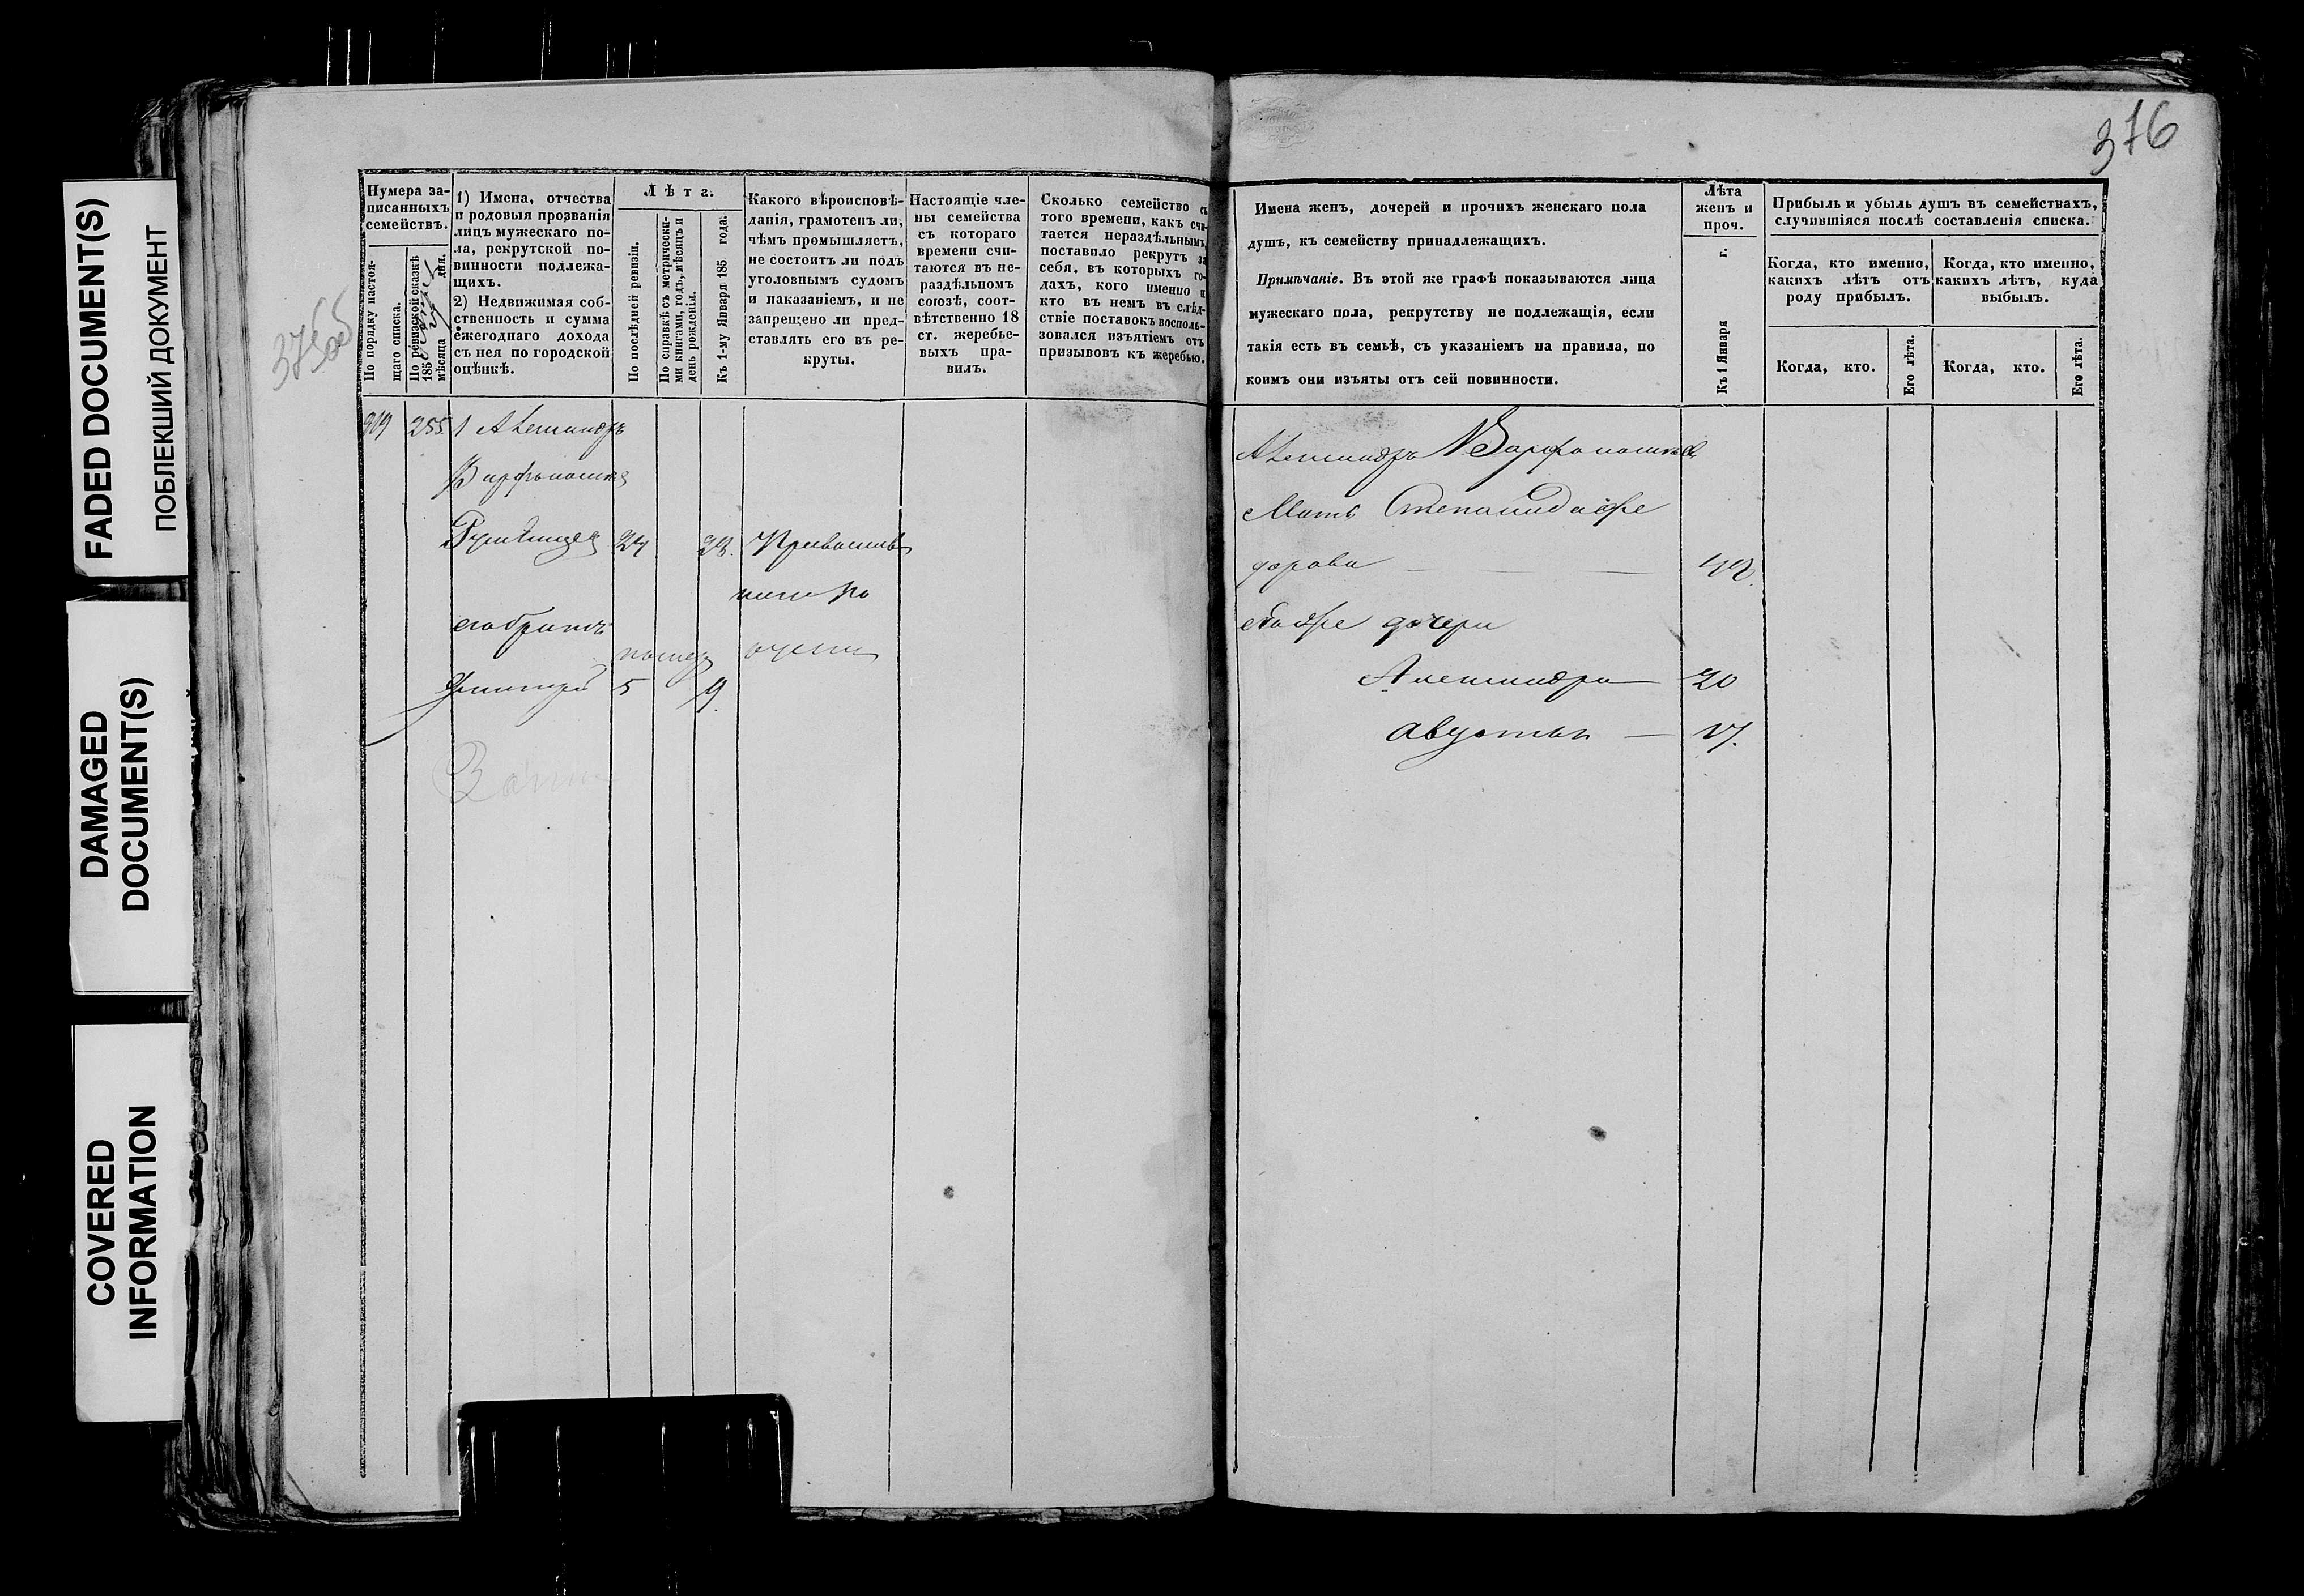 FADED DOCUMENT(S)
ПОБЛЕКШИЙ ДОКУМЕНТ
DAMAGED
DOCUMENT(S)
COVERED
INFORMATION
375об
Нумера за-
писанныхъ
семействъ.
По порядку настоя-
щаго списка.
По ревизской сказкѣ
185
мѣсяца дня.
1) Имена, отчества
и родовыя прозванія
лицъ мужескаго по-
ла, рекрутской по-
винности подлежа-
щихъ.
2) Недвижимая соб-
ственность и сумма
ежегоднаго дохода
съ нея по городской
оцѣнкѣ.
Лѣта.
По послѣдней ревизіи.
По справкѣ съ метрически-
ми книгами, годъ, мѣсяцъ и
день рожденія.
Къ 1-му Января 185 года.
Какого вѣроисповѣ-
данія, грамотенъ ли,
чѣмъ промышляетъ,
не состоитъ ли подъ
уголовнымъ судомъ
и наказаніемъ, и не
запрещено ли пред-
ставлять его въ ре-
круты.
Настоящіе чле-
ны семейства
съ котораго
времени счи-
таются въ не-
раздѣльномъ
союзѣ, соот-
вѣтственно 18
ст. жеребье-
выхъ пра-
вилъ.
Сколько семейство съ
того времени, какъ счи-
тается нераздѣльнымъ,
поставило рекрутъ за
себя, въ которыхъ го-
дахъ, кого именно и
кто въ немъ въ слѣд-
ствіе поставокъ восполь-
зовался изъятіемъ отъ
призывовъ къ жеребью.
319 255 1 Александръ
Варфоломеевъ
24 28. Православ
его братъ
Дмитрій 5 9.
376
Имена женъ, дочерей и прочихъ женскаго пола
душъ, къ семейству принадлежащихъ.
Примѣчаніе. Въ этой же графѣ показываются лица
мужескаго пола, рекрутству не подлежащія, если
такія есть въ семьѣ, съ указаніемъ на правила, по
коимъ они изъяты отъ сей повинности.
Лѣта
женъ и
проч.
Къ 1 Января г.
Прибыль и убыль душъ въ семействахъ,
случившіяся послѣ составленія списка.
Когда, кто именно,
какихъ лѣтъ отъ
роду прибылъ.
Когда, кто именно,
какихъ лѣтъ, куда
выбылъ.
Когда, кто.
Его лѣта.
Когда, кто.
Его лѣта.
Александра Варфоломеева
Мать Степанида Фе
дорова
ея же дочери
Александра 20
Августа 17.